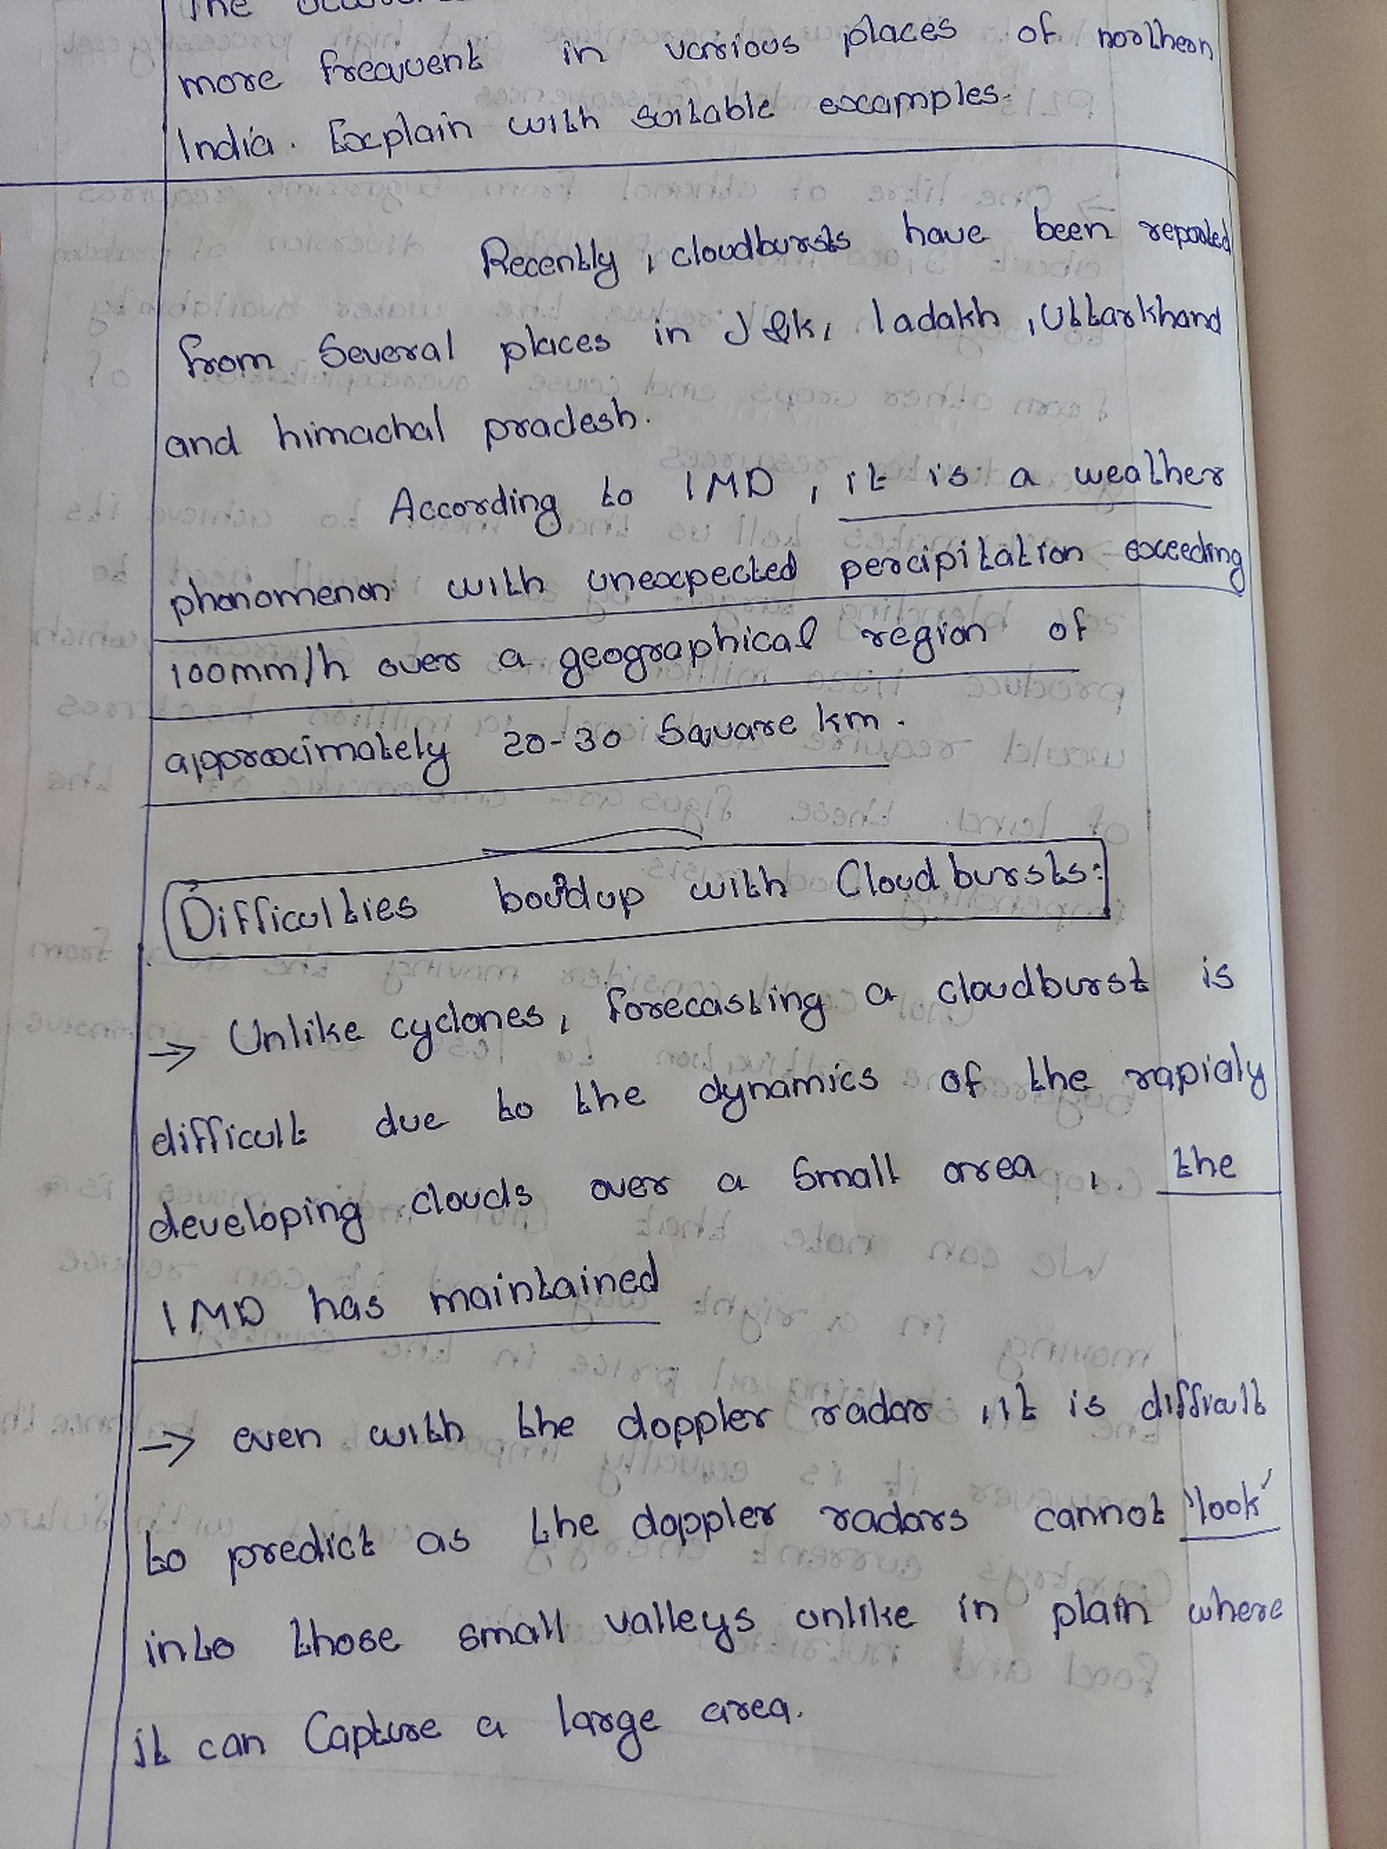 The
more frequent in various places of northern
India. Explain with suitable examples.
Recently, cloudbursts have been reported
from several places in J&k, ladakh, Uttarkhand
and himachal pradesh.
According to IMD, it is a weather
phenomenon with unexpected percipitation exceeding
100mm/h over a geographical region of
approximately 20-30 Square km.
Difficulties boundup with Cloud bursts:
→ Unlike cyclones, forecasting a cloudburst is
difficult due to the dynamics of the rapidly
developing clouds over a small area, the
IMD has maintained
→ even with the doppler radar, it is difficult
to predict as the doppler radars cannot 'look'
into those small valleys unlike in plain where
it can Capture a large area.